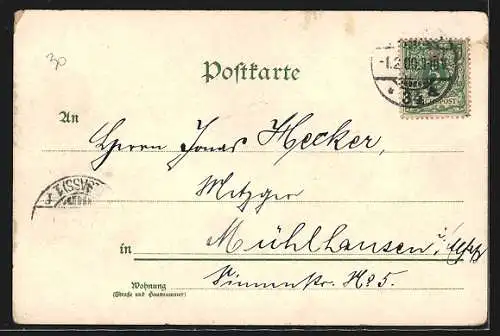 30
Postkarte
-1.2.00.
REICHSPOST
An
Herrn Jonas Hecker,
Metzger
in Mühlhausen i/Elsaß
Wohnung
(Straße und Hausnummer)
No 5.